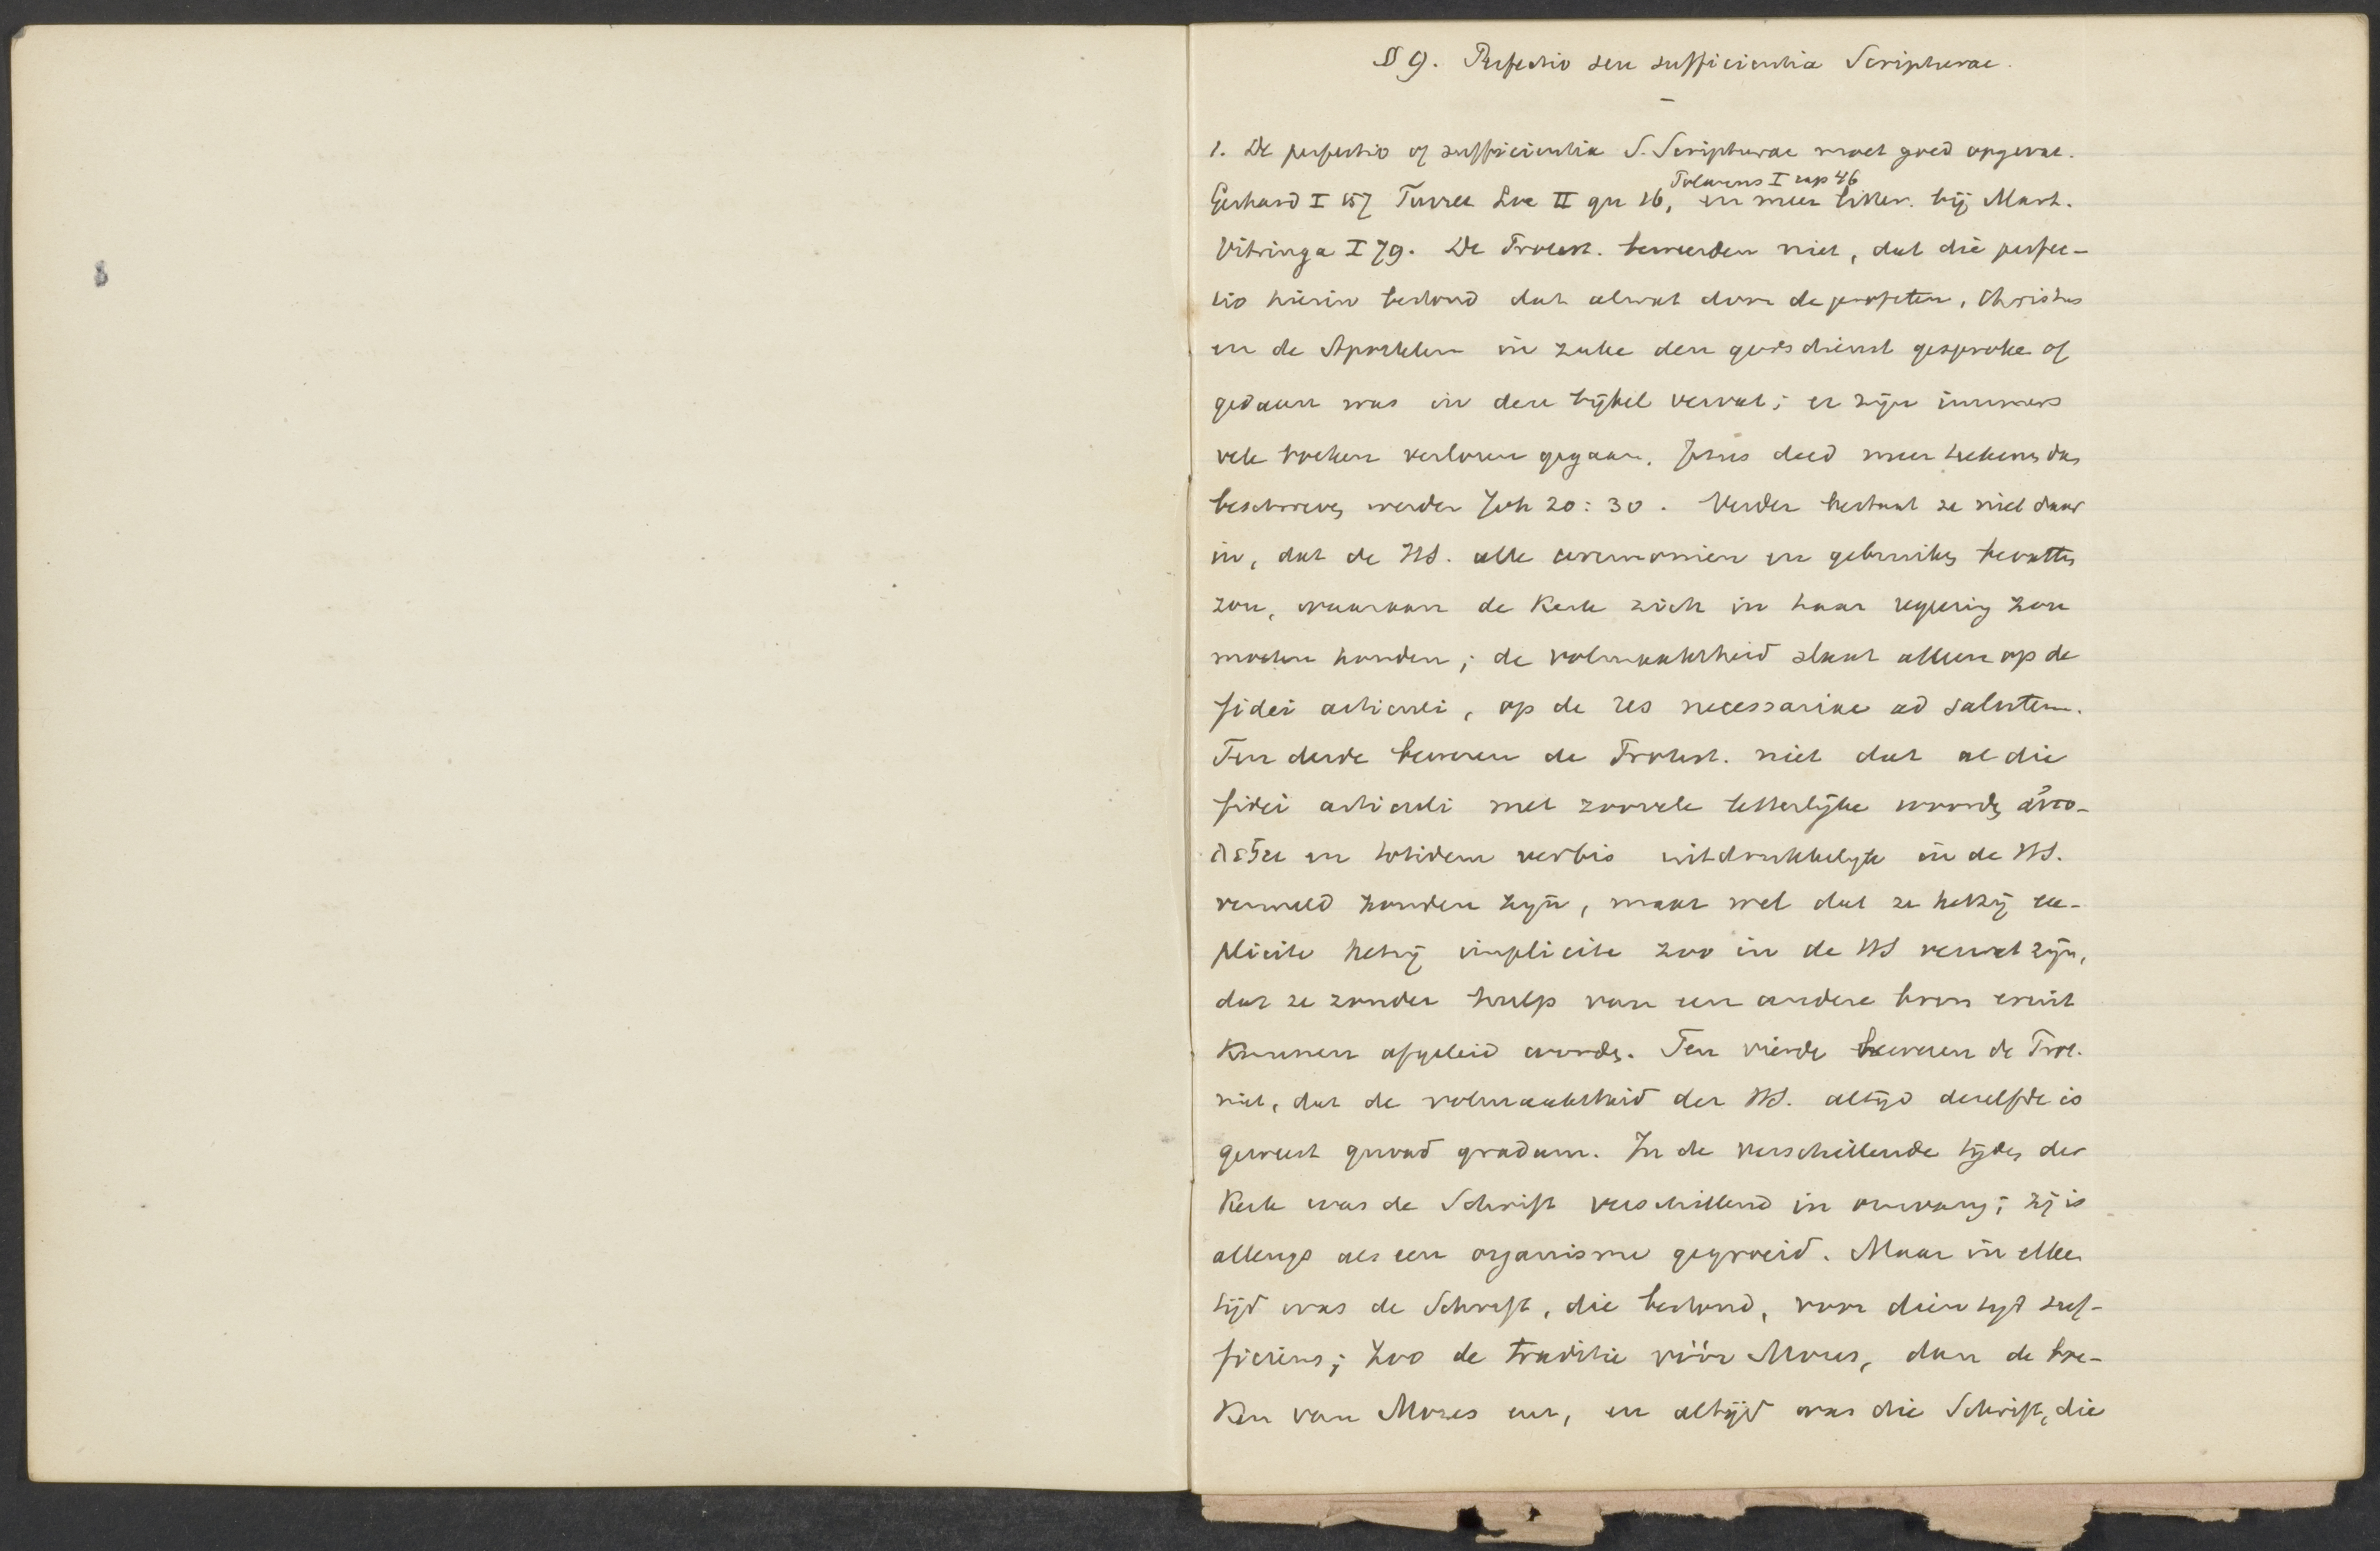 § 9. Perfectio seu sufficientia Scripturae.
1. De perfectio of sufficientia S. Scripturae moet goed opgevat.
Polanus I cap 46
Gerhard I 157 Turret Loc II qu 16, en meer litter. bij Mart.
Vitringa I 79. De Protest. beweerden niet, dat die perfec-
tio hierin bestond dat alwat door de profeten, Christus
en de Apostelen in zake den godsdienst gesproke of
gedaan was in den bijbel vervat; er zijn immers
vele boeken verloren gegaan, Jezus deed meer teekenen dan
beschreven werden Joh 20:30. Verder bestaat ze niet daar
in, dat de HS. alle ceremonien en gebruiken bevatten
zou, waaraan de Kerk zich in haar regeering zou
moeten houden; de volmaaktheid slaat alleen op de
fidei articuli, op de res necessariae ad salutem.
Ten derde beweren de Protest. niet dat al die
fidei articuli met zoovele letterlijke woorden αὐτο-
λεξει en totidem verbis uitdrukkelijk in de HS.
vermeld zouden zijn, maar wel dat ze hetzij ex-
plicite hetzij implicite zoo in de HS vervat zijn,
dat ze zonder hulp van een andere bron eruit
kunnen afgeleid worden. Ten vierde beweren de Prot.
niet, dat de volmaaktheid der HS. altijd dezelfde is
geweest quoad gradum. In de verschillende tijden der
Kerk was de Schrift verschillend in omvang; zij is
allengs als een organisme gegroeid. Maar in elken
tijd was de Schrift, die bestond, voor dien tijd suf-
ficiens; zoo de traditie vóór Mozes, dan de boe-
ken van Mozes enz, en altijd was die Schrift, die